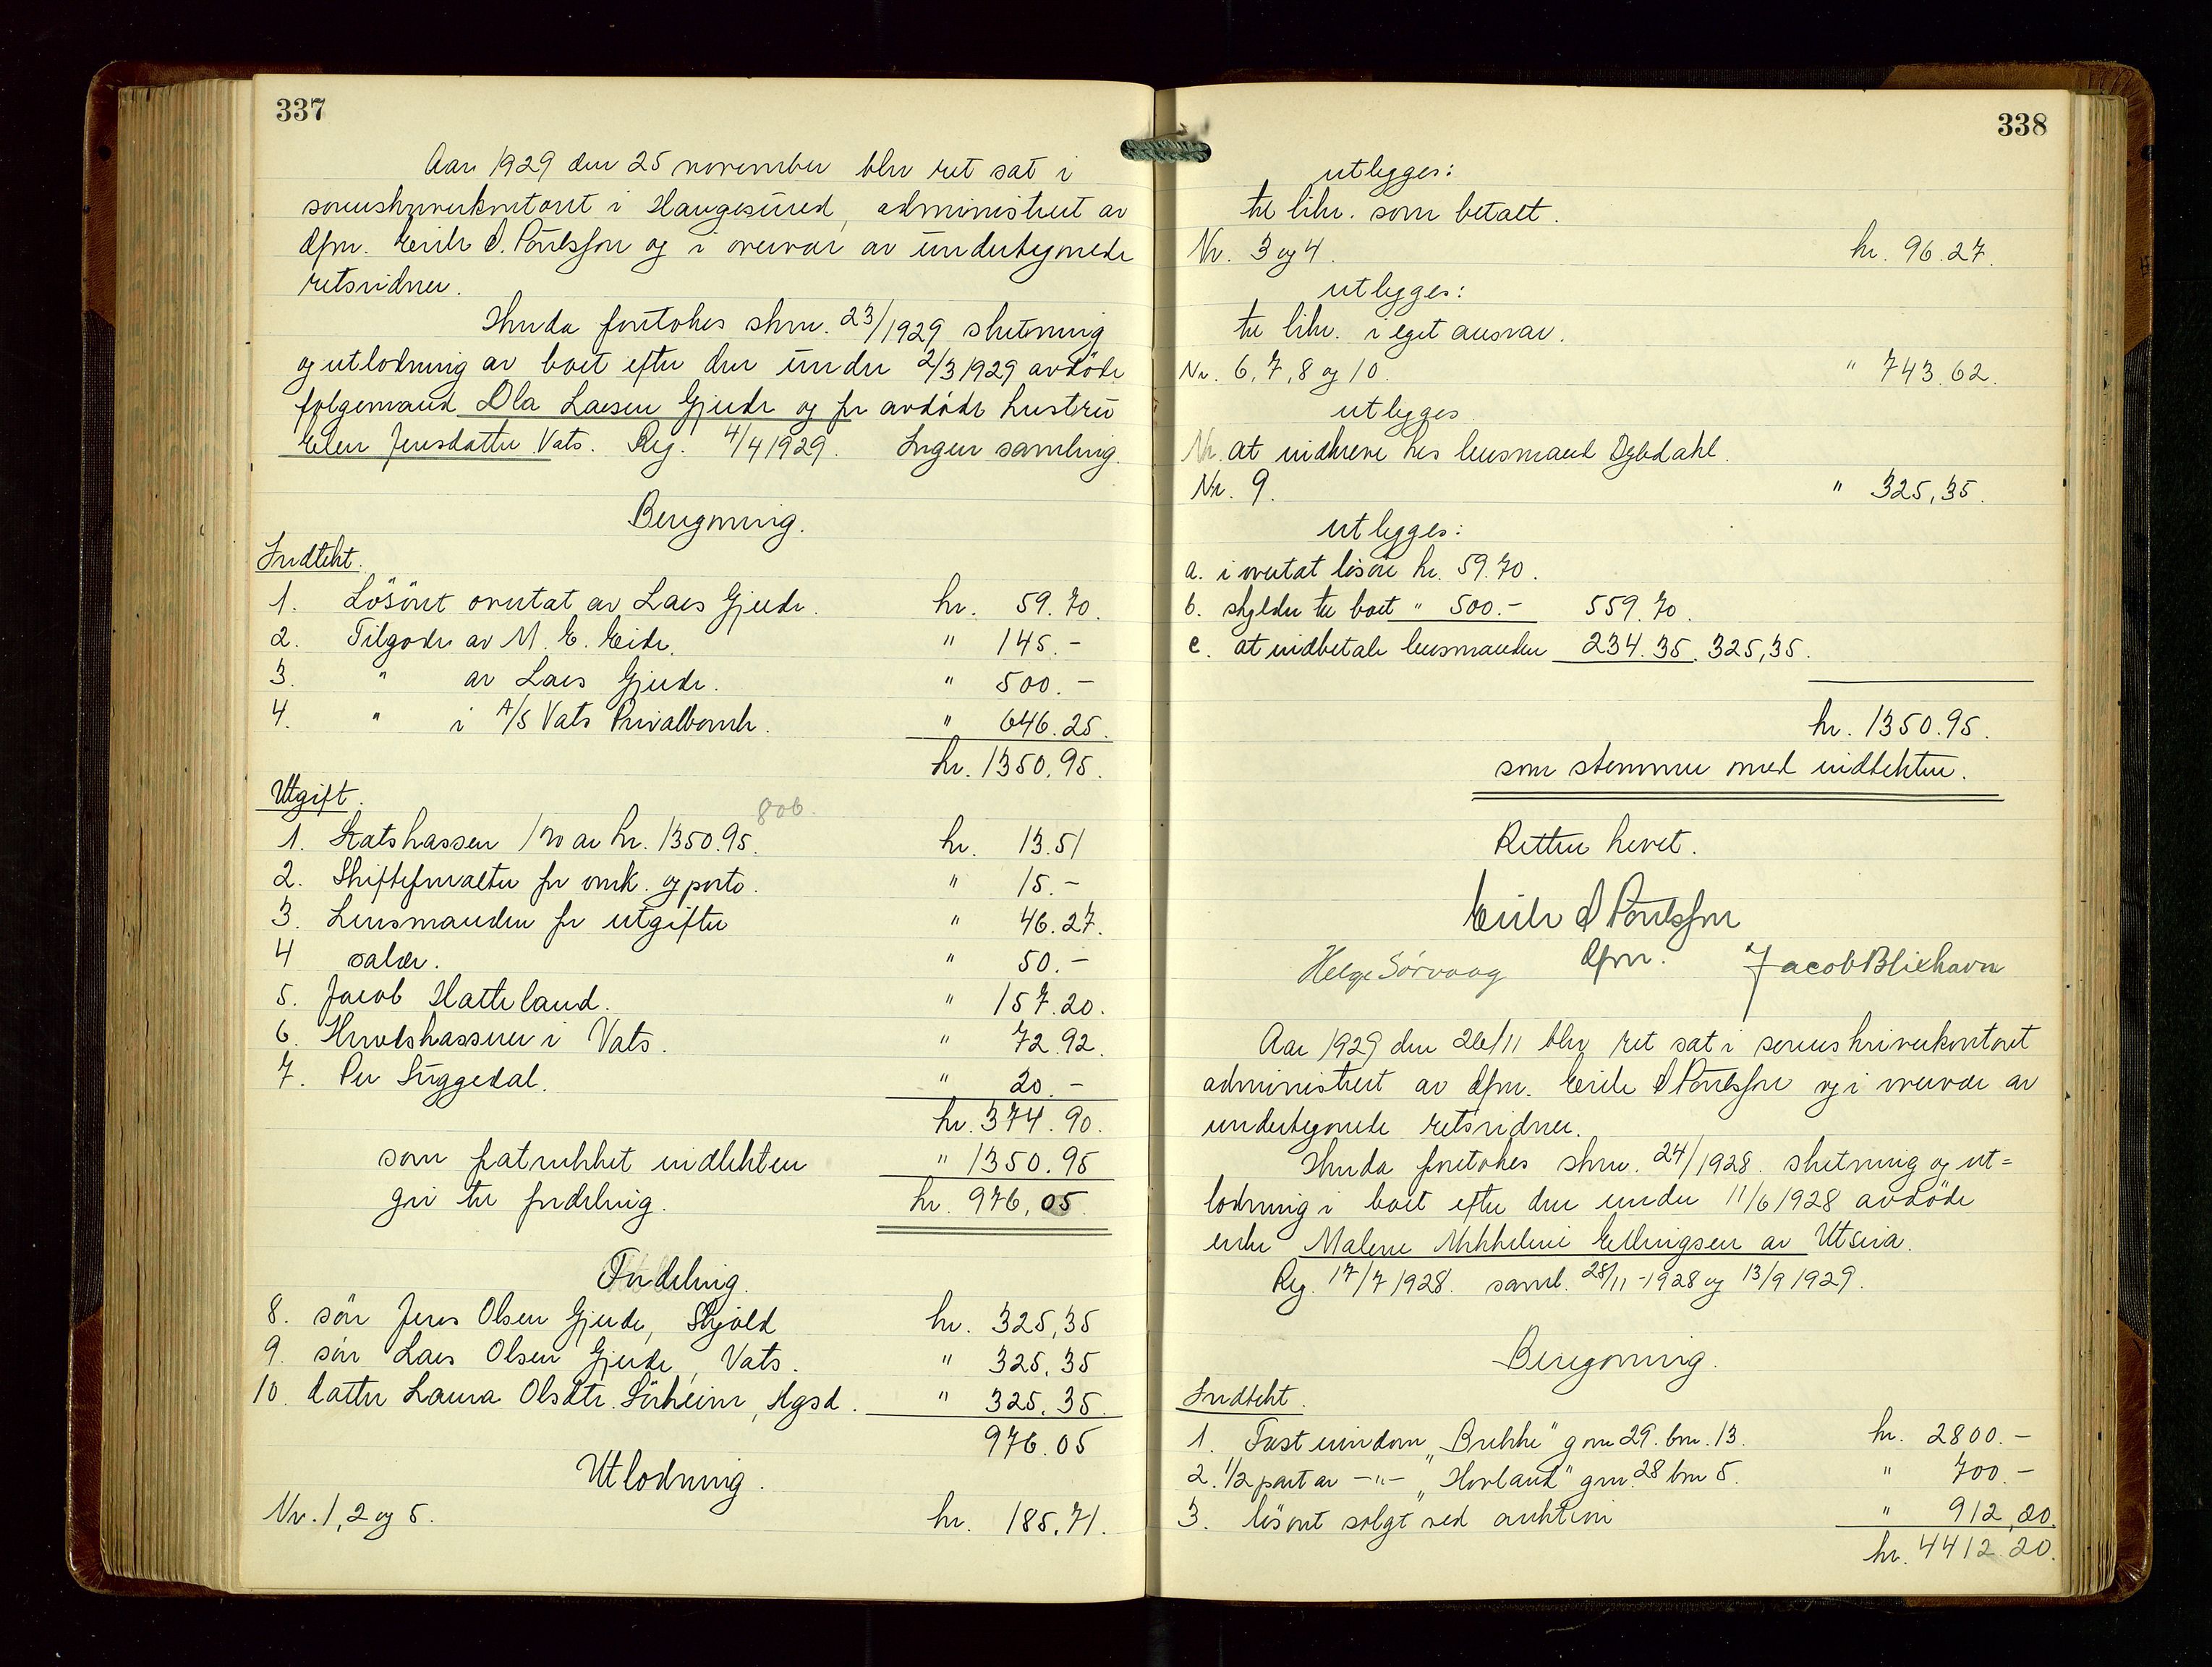 337
Aar 1929 den 25 november blev ret sat i
sorenskriverkontoret i Haugesund, administrert av
dfm. Eirik d. Poulsson og i overvær av undertegnede
retsvidner.
Hvorda foretokes skrn. 23/1929 slutning
og utlodning av boet efter den under 2/3 1929 avdöde
følgemand Ola Larsen Gjerde og før avdöde hustru
Elen Jensdatter Vats. Reg. 4/4 1929. Ingen samling.
Beregning.
Indtekt.
1. Lösöret overtat av Lars Gjerde. kr. 59.70.
2. Tilgode av M. E. Eide. " 145.-
3. " av Lars Gjerde. " 500.-
4. " i A/S Vats Privatbank. " 646.25.
kr. 1350.95.
Utgift.
806.
1. Statskassen 1% av kr. 1350.95. kr. 13.51
2. Skifteforvalter for omk. og porto. " 15.-
3. Lensmanden for utgifter " 46.27.
4 salær. " 50.-
5. Jacob Hatteland. " 157.20.
6. Herredskassen i Vats. " 72.92.
7. Per Suggedal. " 20.-
kr. 374.90.
som fratrukket indtekten " 1350.95
gir til fordeling. kr. 976,05
Fordeling.
8. sön Jens Olsen Gjerde, Skjold kr. 325,35
9. sön Lars Olsen Gjerde, Vats. " 325,35
10. datter Laura Olsdtr. Sörheim, Hgsd. " 325.35.
976.05
Utlodning.
Nr. 1, 2 og 5. kr. 185.71.
338
utlegges:
til likv. som betalt.
Nr. 3 og 4. kr. 96.27.
utlegges:
til likv. i eget ansvar.
Nr. 6, 7, 8 og 10. " 743.62.
utlegges
Nr. at indkreve hos lensmand Dybdahl.
Nr. 9. " 325,35.
utlegges:
a. i overtat lösöre kr. 59.70.
b. skylder til boet " 500.- 559.70.
c. at indbetale lensmanden 234.35. 325,35.
kr. 1350.95.
som stemmer med indtekten.
Retten hevet.
Eirik d Poulsson
dfm.
Helge Sørvaag Jacob Blixhavn
Aar 1929 den 26/11 blev ret sat i sorenskriverkontoret
administrert av dfm. Eirik d Poulsson og i overvær av
undertegnede retsvidner.
Hvorda foretokes skrn. 24/1928. slutning og ut=
lodning i boet efter den under 11/6 1928 avdöde
enke Malene Mikkeline Ellingsen av Utsira.
Reg. 17/7 1928. saml. 28/11-1928 og 13/9 1929.
Beregning.
Indtekt.
1. Fast eiendom „Brekke" gnr 29. bnr. 13. kr. 2800.-
2. 1/2 part av -"- „Hovland" gnr. 28 bnr 5. " 700.-
3. lösöret solgt ved auktion " 912,20
kr. 4412.20.